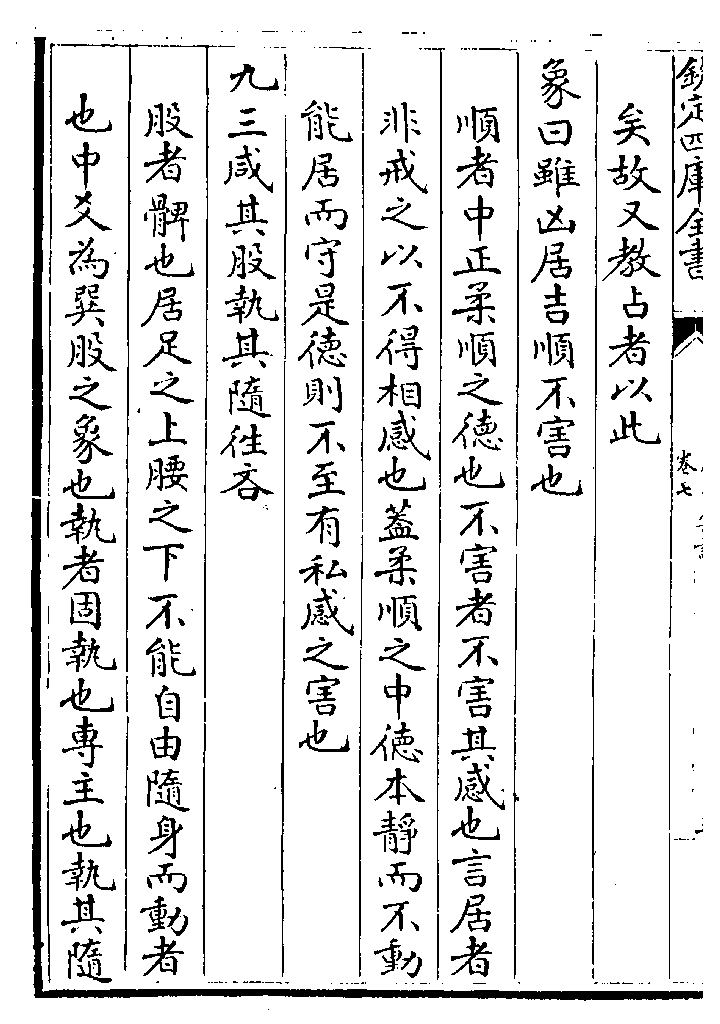 欽定四庫全書
卷七
矣故又教占者以此
象曰雖凶居吉順不害也
順者中正柔順之德也不害者不害其感也言居者
非戒之以不得相感也蓋柔順之中德本靜而不動
能居而守是德則不至有私感之害也
九三咸其股執其隨徃吝
股者髀也居足之上腰之下不能自由隨身而動者
也中爻為巽股之象也執者固執也專主也執其隨